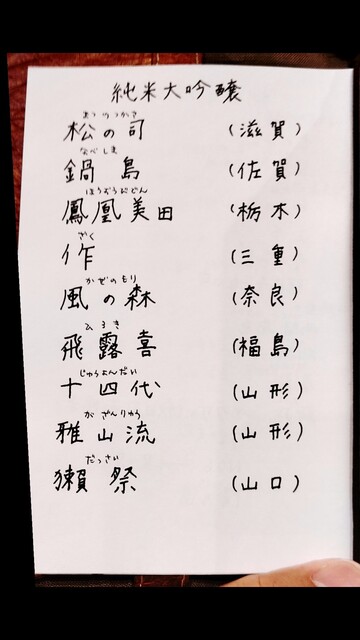 純米大吟醸
まつのつかさ
松の司 (滋賀)
なべしま
鍋島 (佐賀)
ほうおうびでん
鳳凰美田 (栃木)
ざく
作 (三重)
かぜのもり
風の森 (奈良)
ひろき
飛露喜 (福島)
じゅうよんだい
十四代 (山形)
がざんりゅう
雅山流 (山形)
だっさい
獺祭 (山口)